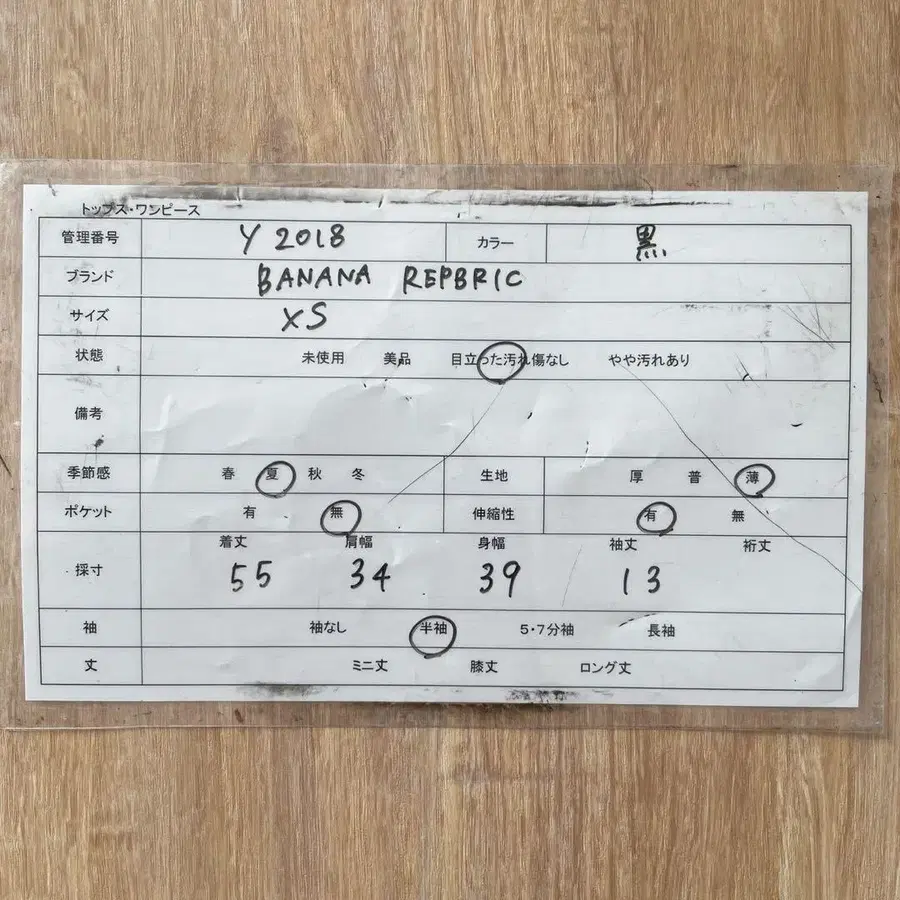 トップス・ワンピース
管理番号 Y 2018 カラー 黒
ブランド BANANA REPBRIC
サイズ XS
状態 未使用 美品 目立った汚れ傷なし やや汚れあり
備考
季節感 春 夏 秋 冬 生地 厚 普 薄
ポケット 有 無 伸縮性 有 無
着丈 肩幅 身幅 袖丈 裄丈
採寸 55 34 39 13
袖 袖なし 半袖 5・7分袖 長袖
丈 ミニ丈 膝丈 ロング丈